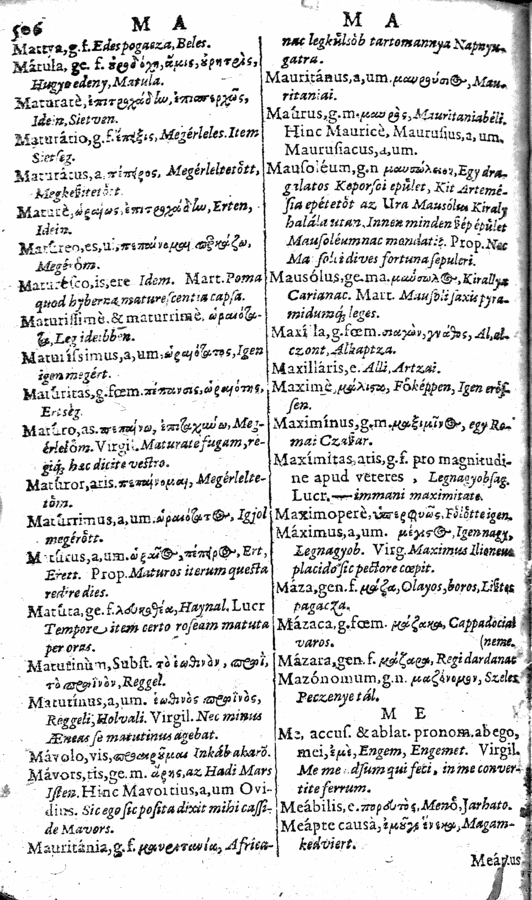 506 M A
Mattya, g.f. Edes pogacza, Beles.
Mátula, ge. f. οὐροδόχη, ἄμις, οὐρητρὶς,
Hugyo edeny, Matula.
Maturatè, ἐπιτροχάδlω,
Idein, Sietven.
Maturátio, g.f. Megérleles. Item
Sietség.
Maturátus, a, πέπειρος, Megérleltetőtt,
Megkeßitetőtt.
Maturè, ὡραίως, ἐπιτροχάδlω, Erten,
Idein.
Matúreo, es, ui, πεπαίνομαι
Megérőm.
Maturésco, is, ere Idem. Mart. Poma
quod hyberna maturescentia capsa.
Maturissimè. & maturrimè.
Leg idebbēn.
Maturissimus, a, um, Igen
igen megért.
Maturitas, g. fœm. πέπανσις, ὡραιότης,
Ertség.
Matúro, as. πεπαίνω, Meg-
érlelőm. Virgil. Maturate fugam, re-
giq́; hæc dicite vestro.
Matúror, aris. πεπαίνομαι, Megérlelte-
tőm.
Maturrimus, a, um, Igjol
megérőtt.
Matúrus, a, um. Ert,
Erett. Prop. Maturos iterum questa
redire dies.
Matúta, ge. f. λουκοθέα, Haynal. Lucr
Tempore item certo roseam matuta
per oras.
Matutinùm, Subst. τὸ ἑωθινὸν,
τὸ πρωϊνὸν, Reggel.
Matutínus, a, um. ἑωθινὸς, πρωϊνὸς,
Reggeli, Holvali. Virgil. Nec minus
Æneas se matutinus agebat.
Mávolo, vis, Inkáb akarő.
Mávors, tis, ge. m. ἄρης, az Hadi Mars
Isten. Hinc Mavortius, a, um Ovi-
dius. Sic ego sic posita dixit mihi cassi-
de Mavors.
Mauritánia, g. f. μαυριτανία, Africa-
M A
nac legkülsőb tartomannya Napnyu-
gatra.
Mauritánus, a, um. Mau-
ritaniai.
Maúrus, g. m. Mauritaniabéli.
Hinc Mauricè, Maurusius, a, um.
Maurusiacus, a, um.
Mausoléum, g.n Egy dra-
galatos Koporsoi epület, Kit Artemé-
sia epétetőt az Ura Mausólus Kiraly
halála utan. Innen minden ßép épület
Mausoléumnac mondatic. Prop. Nec
Mausolei dives fortuna sepulcri.
Mausólus, ge. ma. Kirallya
Carianac. Mart. Mausoli saxis pyra-
midumq́; leges.
Maxilla, g. fœm. σιαγὼν, γνάθος, Al, al
czont, Alkaptza.
Maxilláris, e. Alli, Artzai.
Maximè, μάλιστα, Főképpen, Igen erőſ-
sen.
Maximínus, g.m. egy Ro-
mai Czaßar.
Maxímitas, atis, g.f. pro magnitudi-
ne apud veteres, Legnagyobsag.
Lucr. — immani maximitate.
Maximoperè, Főlőtte igen.
Máximus, a, um. Igen nagy,
Legnagyob. Virg. Maximus Ilioneus
placido sic pectore cœpit.
Máza, gen. f. μάζα, Olayos, boros, Listes
pagacza.
Mázaca, g. fœm. μάζακα, Cappadociai
varos. (neme.
Mázara, gen. f. μάζαρα, Regi dardanac
Mazónomum, g.n. μαζόνομον, Szeles
Peczenye tál.
M E
Me, accus. & ablat. pronom. ab ego,
mei, ἐμὲ, Engem, Engemet. Virgil.
Me me adsum qui feci, in me conver-
tite ferrum.
Meábilis, e. πορευτὸς, Menő, Jarhato.
Meápte causà, ἐμοῦγε ἕνεκα, Magam-
kedviert.
Meátus